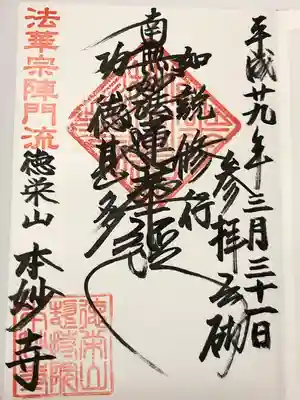 平成廿九年三月三十一日
参拝之砌
如説修行
南無妙法蓮華経
功徳甚多
法華宗陣門流
徳栄山 本妙寺
徳栄山
本妙寺